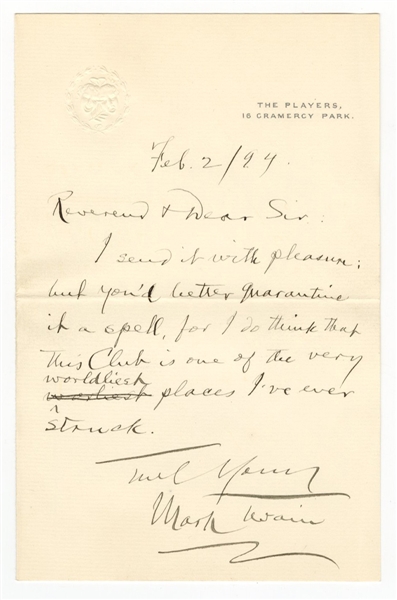 THE PLAYERS,
16 GRAMERCY PARK.
Feb. 2/94.
Reverend & Dear Sir:
I send it with pleasure;
but you'd better quarantine
it a spell, for I do think that
this Club is one of the very
worldliest
places I've ever
struck.
Truly Yours
Mark Twain